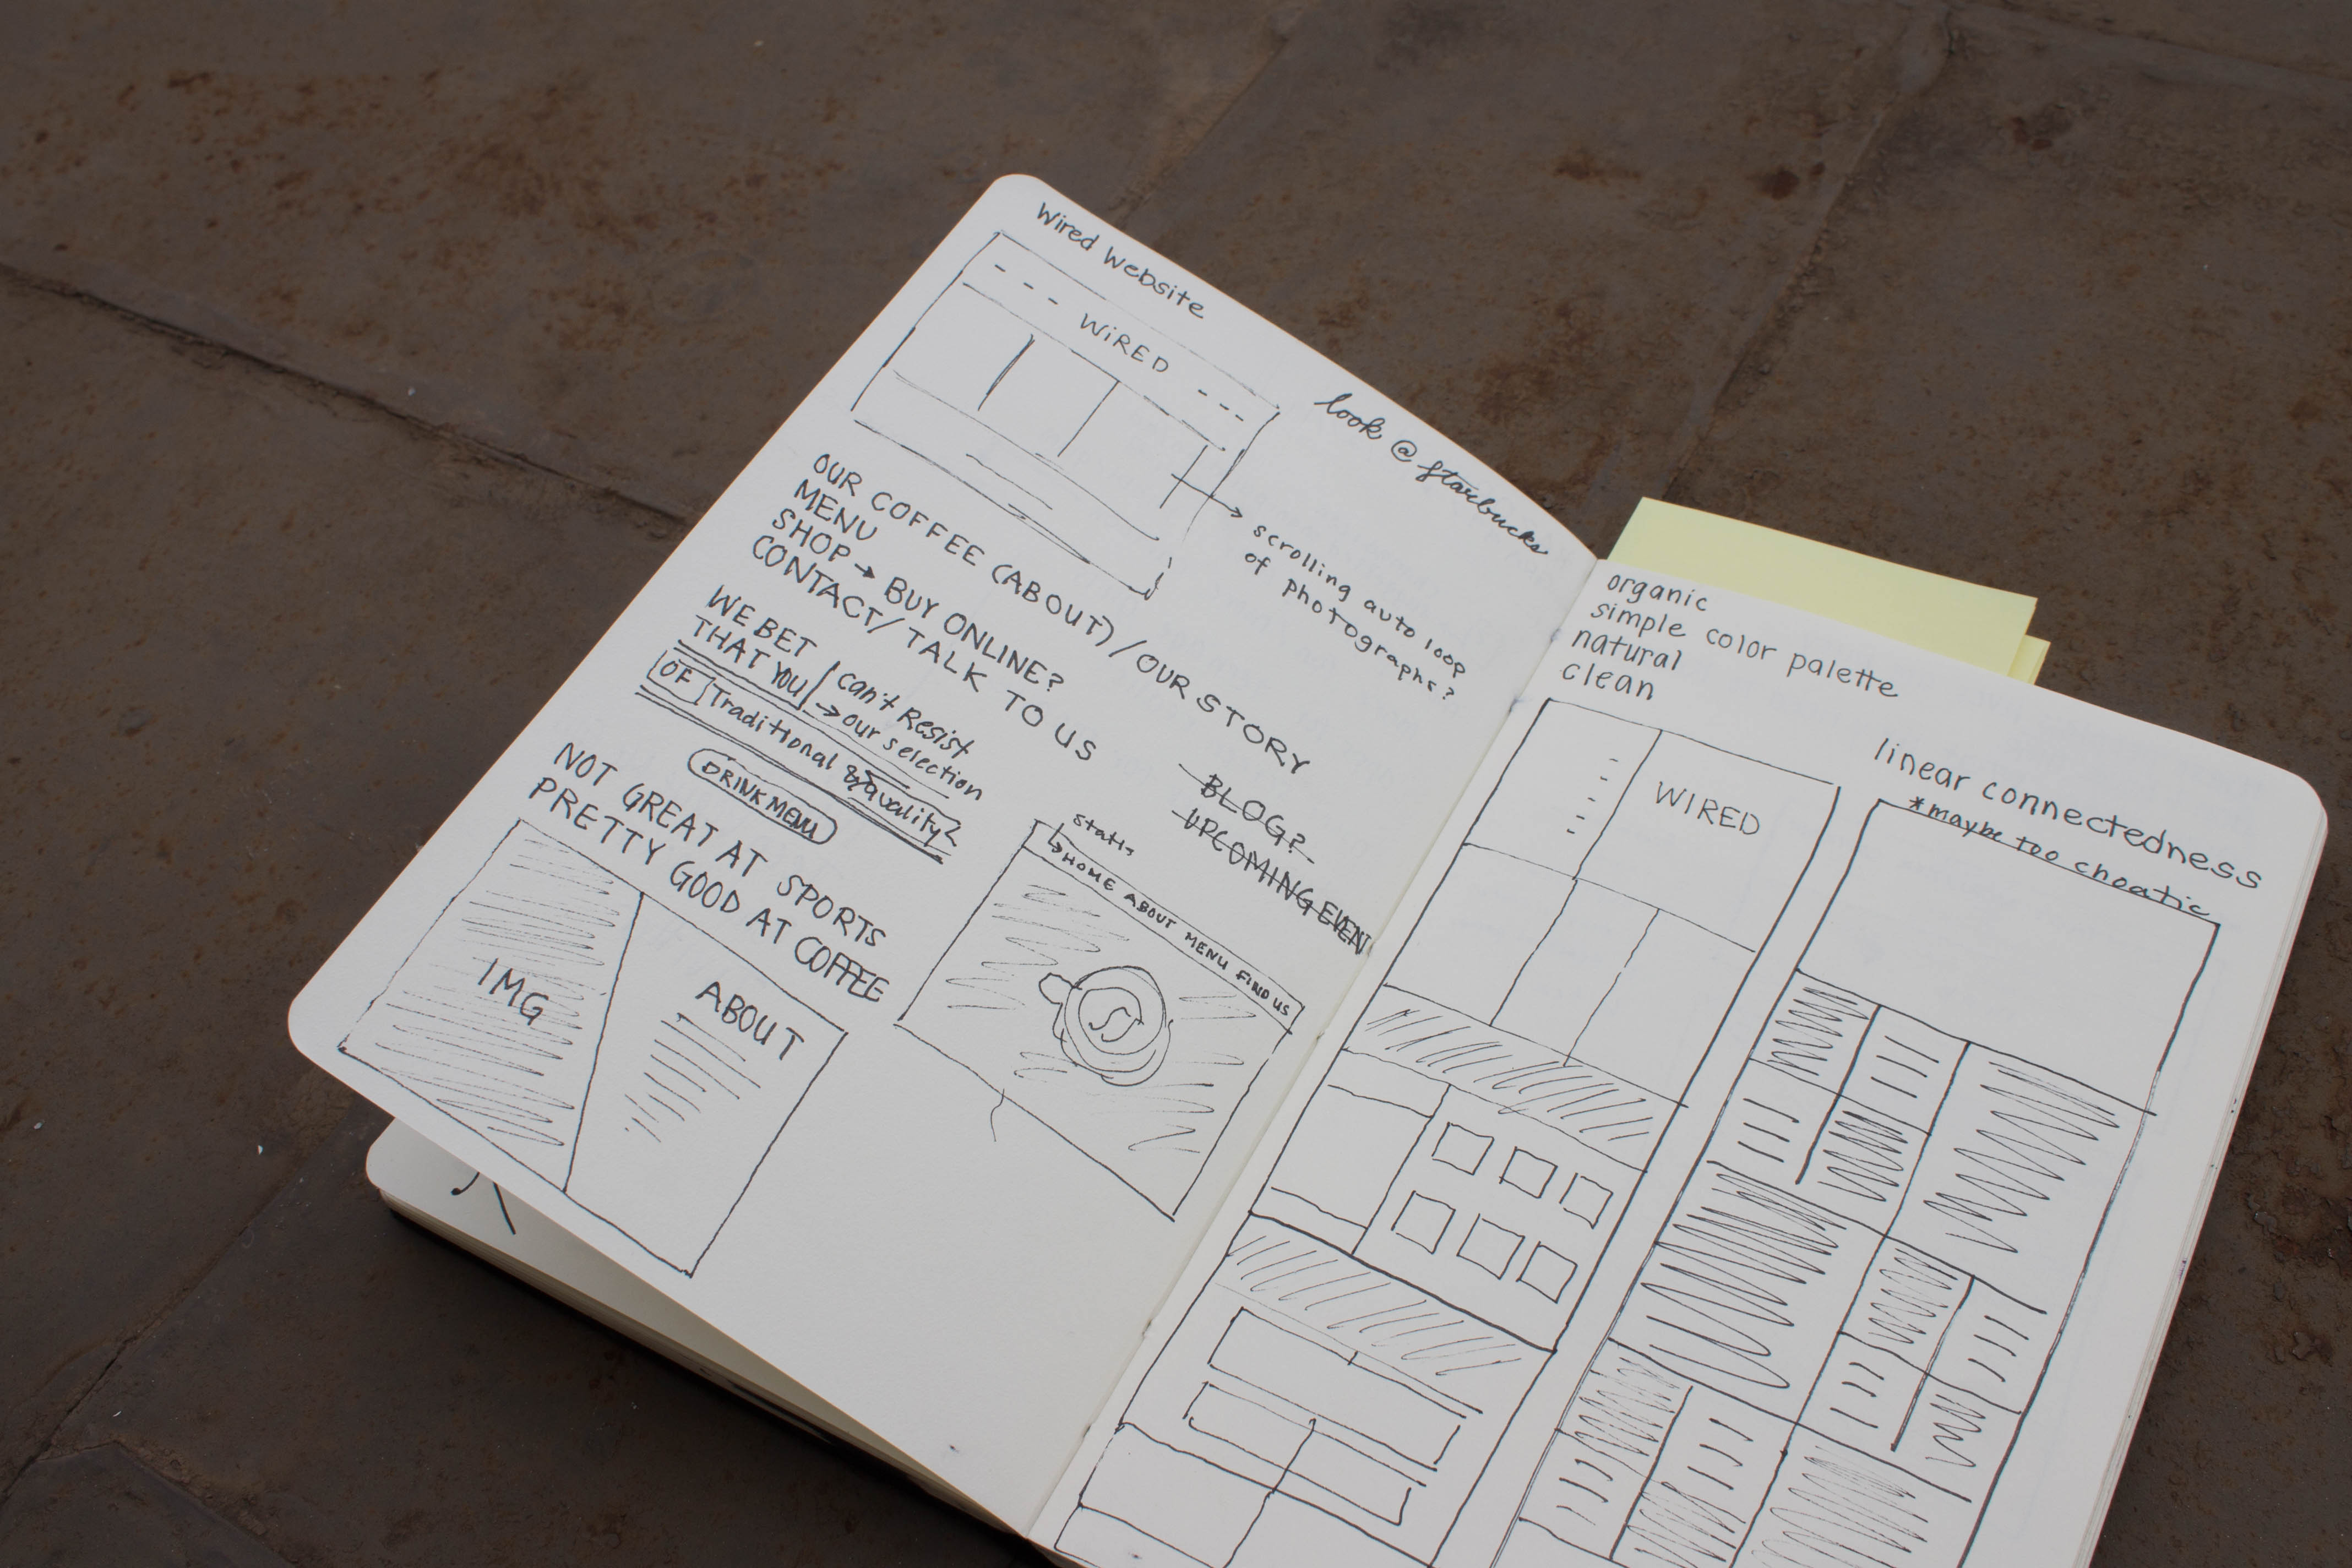 Wired Website
WiRED
look @ starbucks
scrolling auto loop
of photographs?
OUR COFFEE (ABOUT) / OUR STORY
MENU
SHOP → BUY ONLINE?
CONTACT / TALK TO US
BLOG?
UPCOMING EVEN
WE BET
THAT YOU
can't Resist
→ our selection
OF Traditional & quality
DRINK MENU
NOT GREAT AT SPORTS
PRETTY GOOD AT COFFEE
IMG
ABOUT
HOME ABOUT MENU FIND US
organic
simple color palette
natural
clean
WIRED
linear connectedness
*maybe too choatic